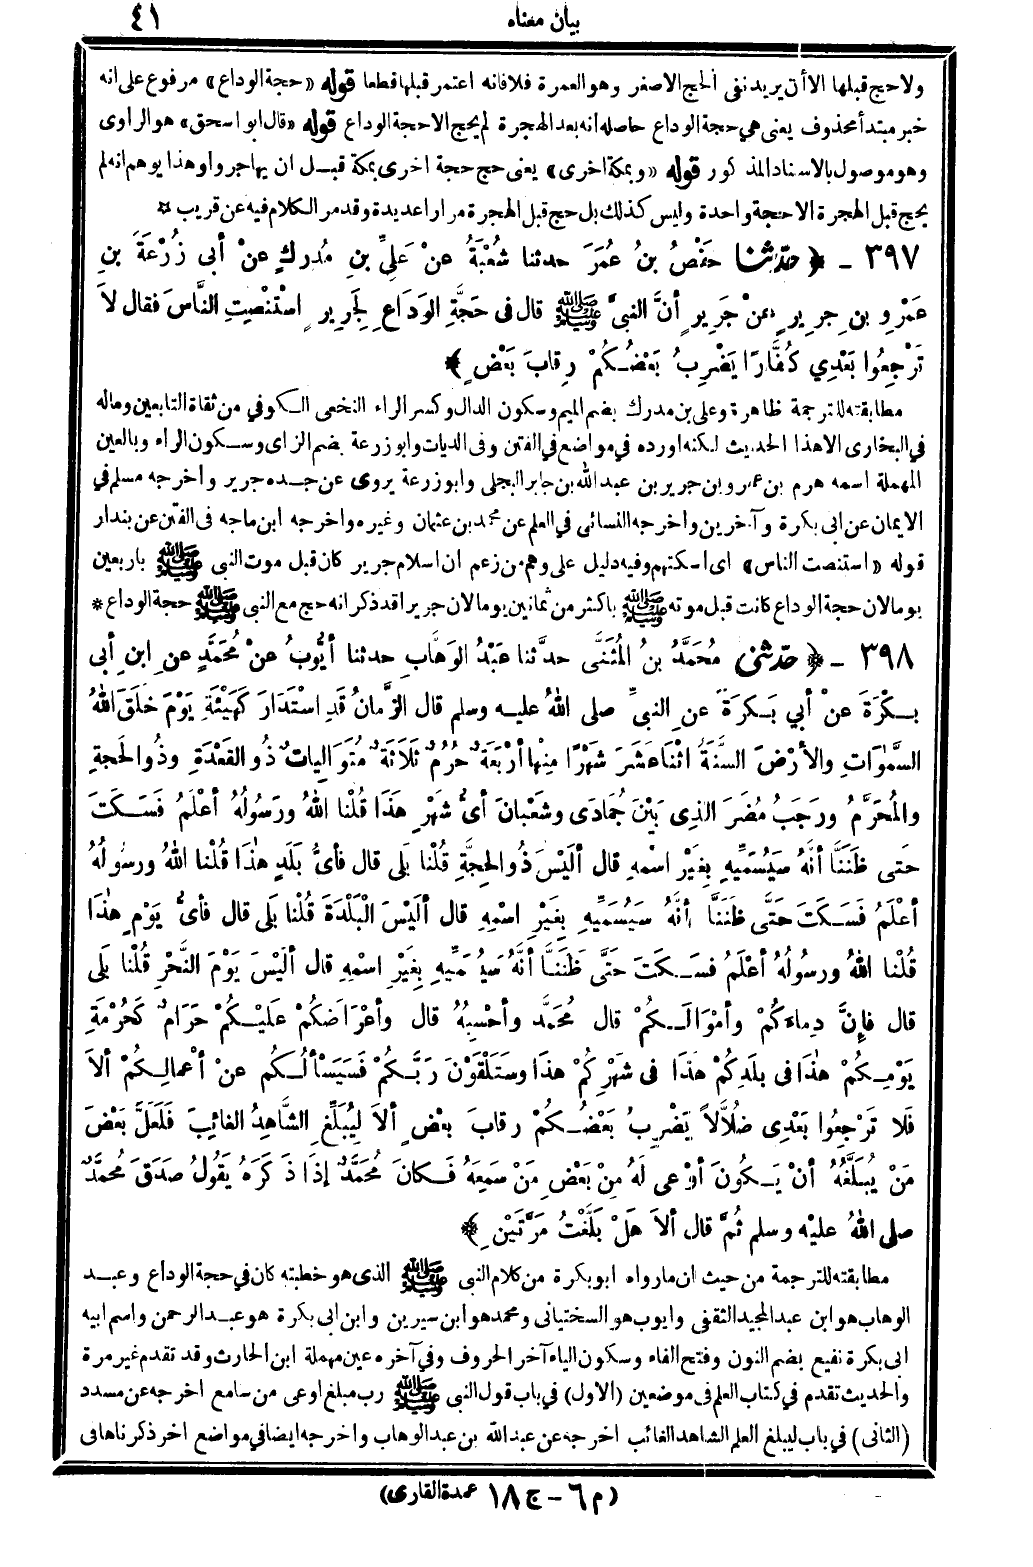 بيان معناه ٤١
ولاحج قبلها الا أن يريد نفى الحج الاصغر وهو العمرة فلا فانه اعتمر قبلها قطعا قوله «حجة الوداع» مرفوع على انه
خبر مبتدأ محذوف يعنى هي حجة الوداع حاصله انه بعد الهجرة لم يحج الا حجة الوداع قوله «قال ابو اسحق» هو الراوى
وهو موصول بالاسناد المذكور قوله «وبمكة اخرى» يعنى حج حجة اخرى بمكة قبل ان يهاجر وهذا يوهم انه لم
يحج قبل الهجرة الا حجة واحدة وليس كذلك بل حج قبل الهجرة مرارا عديدة وقد مر الكلام فيه عن قريب ¤
٣٩٧ ـ ﴿ حدّثنا حَفْصُ بنُ عُمَرَ حدثنا شُعْبَةُ عنْ عَلِيِّ بنِ مُدركٍ عنْ أبى زُرْعَةَ بنِ
عَمْرِو بنِ جريرٍ عنْ جَرِيرٍ أنَّ النبىَّ ﷺ قال فى حَجَّةِ الوَدَاعِ لِجَرِيرٍ اسْتَنْصِتِ النَّاسَ فقال لاَ
تَرْجِعُوا بَعْدِي كُفَّارًا يَضْرِبُ بَعْضُكُمْ رِقابَ بَعْضٍ ﴾
مطابقته للترجمة ظاهرة وعلى بن مدرك بضم الميم وسكون الدال وكسر الراء النخعى الكوفي من ثقاة التابعين وماله
في البخارى الا هذا الحديث لكنه اورده في مواضع في الفتن وفى الديات وابو زرعة بضم الزاى وسكون الراء وبالعين
المهملة اسمه هرم بن عمرو بن جرير بن عبد الله بن جابر البجلى وابو زرعة يروى عن جده جرير وأخرجه مسلم في
الايمان عن ابى بكرة وآخرين واخرجه النسائى في العلم عن محمد بن عثمان وغيره واخرجه ابن ماجه فى الفتن عن بندار
قوله «استنصت الناس» اى اسكتهم وفيه دليل على وهم من زعم ان اسلام جرير كان قبل موت النبى ﷺ باربعين
يوما لان حجة الوداع كانت قبل موته ﷺ باكثر من ثمانين يوما لان جريرا قد ذكر انه حج مع النبى ﷺ حجة الوداع *
٣٩٨ ـ ﴿ حدّثنى مُحَمَّدُ بنُ المُثَنَّى حدَّثنا عَبْدُ الوَهَّابِ حدثنا أيُّوبُ عنْ مُحَمَّدٍ عنِ ابنِ أبى
بَكْرَةَ عنْ أبي بَكرَةَ عنِ النبىِّ صلى اللهُ عليه وسلم قال الزَّمانُ قَدِ اسْتَدَارَ كَهَيْئَةِ يَوْمَ خَلَقَ اللهُ
السَّمٰوَاتِ والأرْضَ السَّنَةُ اثْنَا عَشَرَ شَهْرًا مِنْها أرْبَعَةٌ حُرُمٌ ثَلاَثَةٌ مُتَوَالِياتٌ ذُو القَعْدَةِ وذُو الحَجةِ
والمُحَرَّمُ ورَجَبُ مُضَرَ الذِى بَيْنَ جُمَادَى وشَعْبَانَ أىُّ شَهْرٍ هَذَا قُلْنا اللهُ ورَسُولُهُ أعْلَمُ فَسَكَتَ
حَتى ظَنَنَّا أنَّهُ سَيُسَمِّيهِ بِغَيْرِ اسْمِهِ قال ألَيْسَ ذُو الحِجَّةِ قُلْنا بَلَى قال فأىُّ بَلَدٍ هٰذَا قُلْنا اللهُ ورسُولُهُ
أعْلَمُ فَسَكَتَ حَتَّى ظَنَنَّا أنَّهُ سَيُسَمِّيهِ بِغَيْرِ اسْمِهِ قال ألَيْسَ الْبَلْدَةَ قُلْنا بَلَى قال فأىُّ يَوْمٍ هٰذَا
قُلْنا اللهُ ورسُولُهُ أعْلَمُ فسَكَتَ حَتَّى ظَنَنَّا أنَّهُ سَيُسَمِّيهِ بِغَيْرِ اسْمِهِ قال ألَيْسَ يَوْمَ النَّحْرِ قُلْنا بَلَى
قال فإنَّ دِماءَكُمْ وأمْوَالَكُمْ قال مُحَمَّد وأحْسِبُهُ قال وأعْرَاضَكُمْ عَلَيْكُمْ حَرَامٌ كَحُرْمَةِ
يَوْمِكُمْ هٰذَا فى بلَدِكُمْ هٰذَا فى شَهْرِكُمْ هذَا وسَتَلْقَوْنَ رَبَّكُمْ فَسَيَسْألُكُم عنْ أعْمالِكُمْ ألاَ
فَلاَ تَرْجِعُوا بَعْدِى ضُلاَّلاً يَضْرِبُ بَعْضُكُمْ رقابَ بعْضٍ ألاَ لِيُبَلِّغِ الشَّاهِدُ الغائِبَ فَلَعَلَّ بَعْضَ
مَنْ يُبَلَّغُهُ أنْ يَكُونَ أوْعى لَهُ مِنْ بَعْضِ مَنْ سَمِعَهُ فَكانَ مُحَمَّدٌ إذَا ذَكَرَهُ يَقُولُ صَدَقَ مُحمَّدٌ
صلى اللهُ عليْه وسلم ثُمَّ قال ألاَ هَلْ بَلَّغْتُ مَرَّتَيْنِ ﴾
مطابقته للترجمة من حيث ان ما رواه ابو بكرة من كلام النبى ﷺ الذى هو خطبته كان في حجة الوداع وعبد
الوهاب هو ابن عبد المجيد الثقفى وايوب هو السختيانى ومحمد هو ابن سيرين وابن ابى بكرة هو عبد الرحمن واسم ابيه
ابى بكرة نفيع بضم النون وفتح الفاء وسكون الياء آخر الحروف وفي آخره عين مهملة ابن الحارث وقد تقدم غير مرة
والحديث تقدم في كتاب العلم فى موضعين (الاول) في باب قول النبى ﷺ رب مبلغ اوعى من سامع اخرجه عن مسدد
(الثانى) في باب ليبلغ العلم الشاهد الغائب اخرجه عن عبد الله بن عبد الوهاب واخرجه ايضا في مواضع اخر ذكرناها فى
(م ٦ ـ ج ١٨ عمدة القارى)